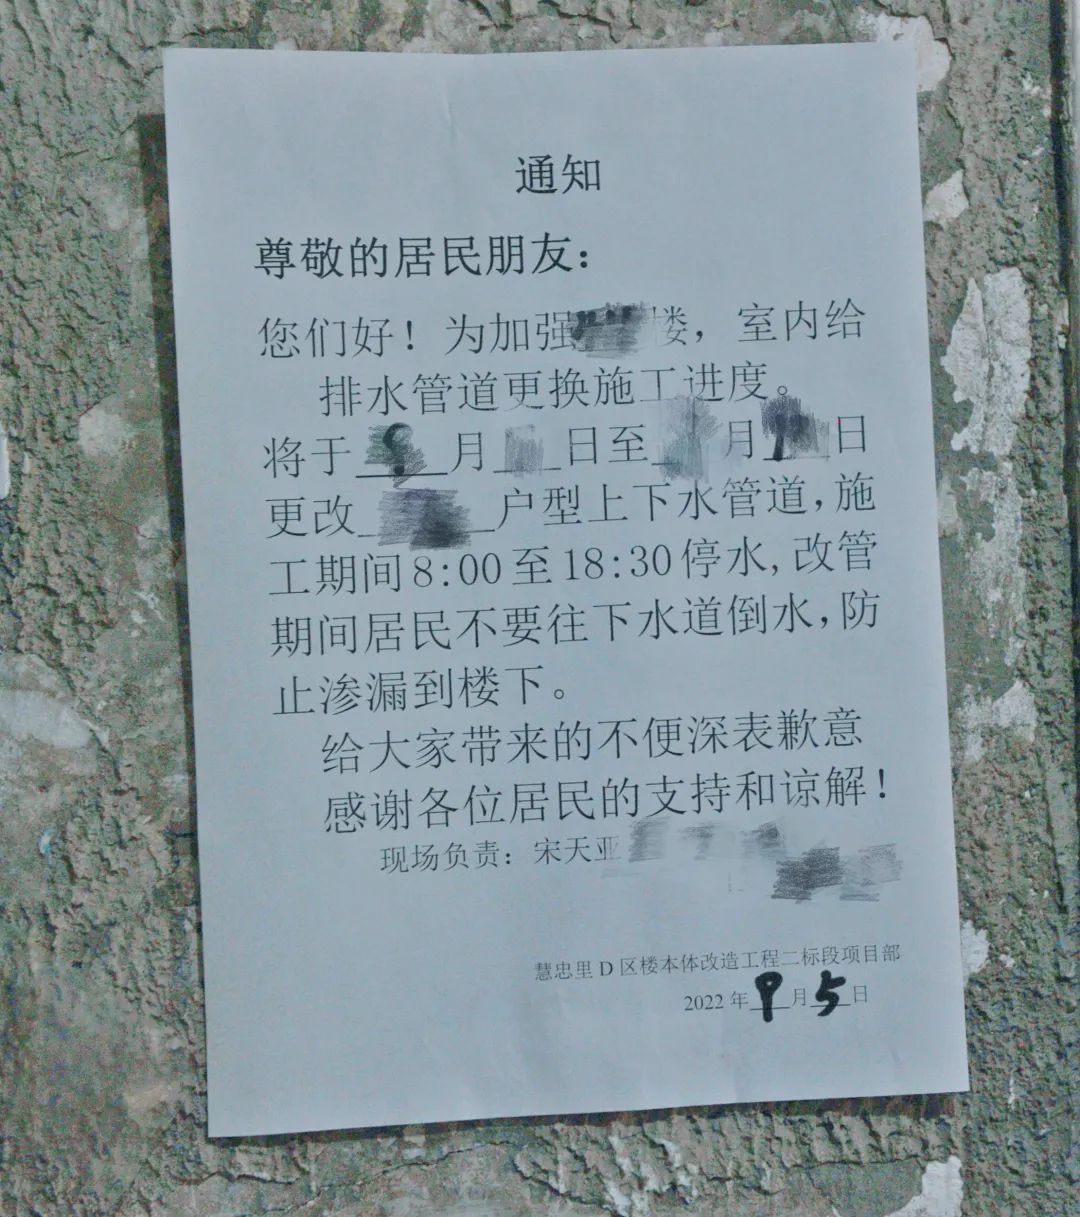 通知
尊敬的居民朋友：
您们好！为加强楼，室内给
排水管道更换施工进度。
将于9月 日至 月 日
更改 户型上下水管道，施
工期间8:00至18:30停水,改管
期间居民不要往下水道倒水,防
止渗漏到楼下。
给大家带来的不便深表歉意
感谢各位居民的支持和谅解！
现场负责：宋天亚
慧忠里D区楼本体改造工程二标段项目部
2022年9月5日